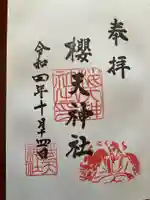 奉拝
櫻天神社
令和四年十月十四日